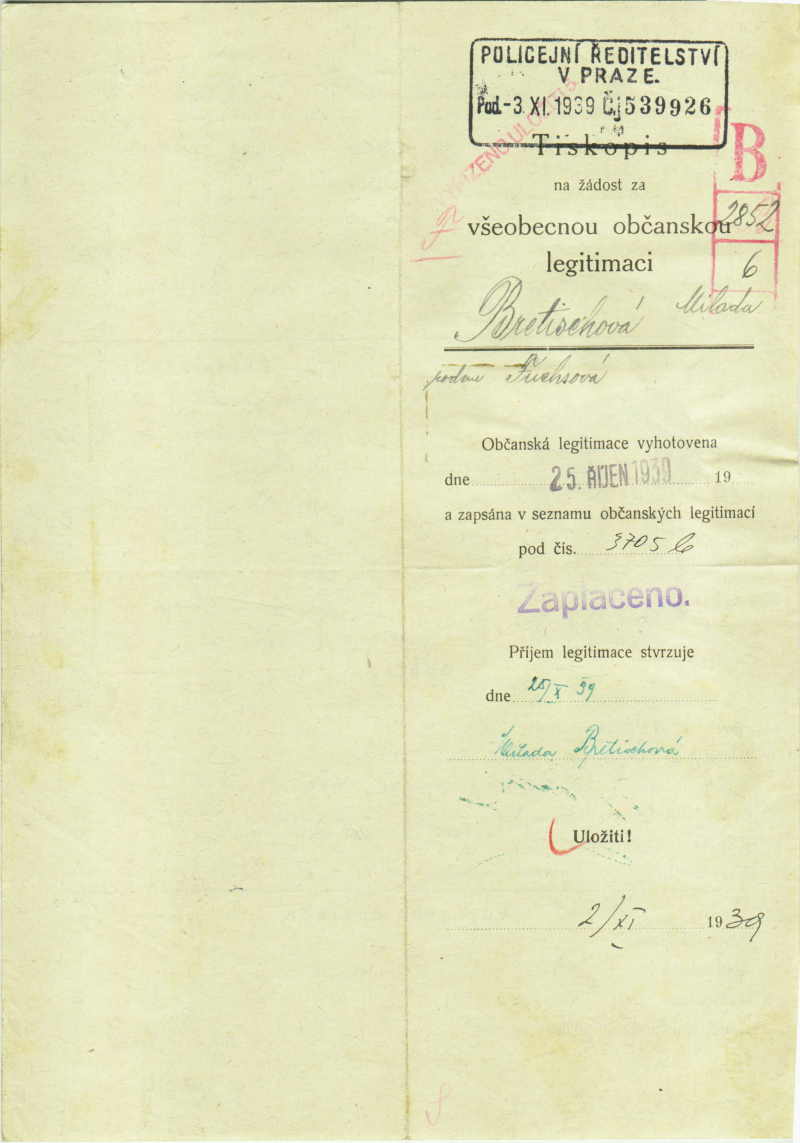 POLICEJNÍ ŘEDITELSTVÍ
V PRAZE.
Pod. -3. XI. 1939 Čj 539926
Tiskopis
B
na žádost za
2852
všeobecnou občanskou
legitimaci
6
Bretischová Milada
Fuchsová
Občanská legitimace vyhotovena
dne 25. ŘÍJEN 1939 19
a zapsána v seznamu občanských legitimací
pod čís. 3705
Zaplaceno.
Příjem legitimace stvrzuje
dne 25/X 39
Milada Bretischová
Uložiti!
2/XI 1939